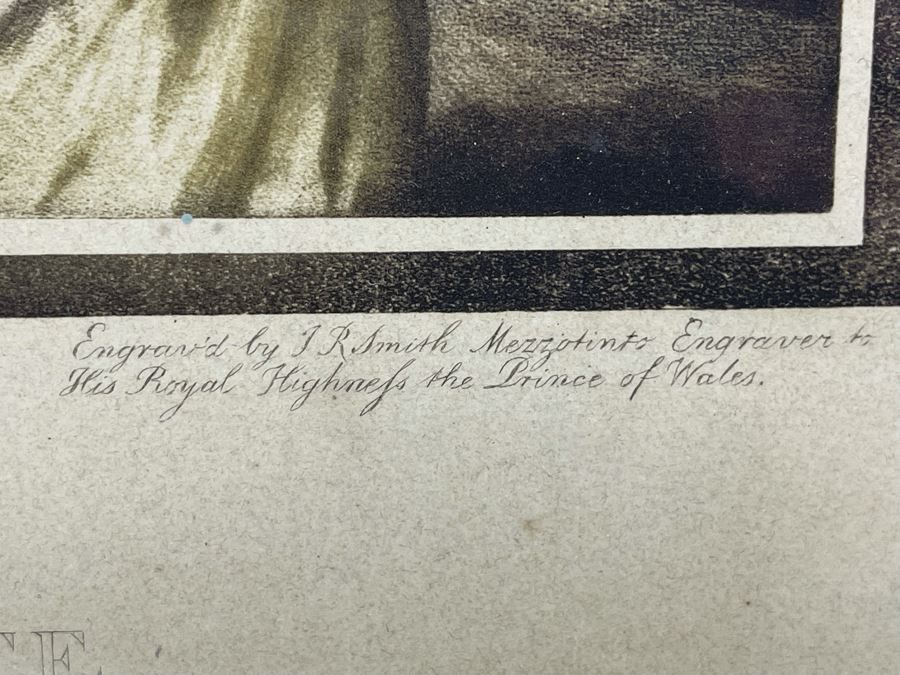 Engrav'd by J R Smith Mezzotinto Engraver to
His Royal Highneſs the Prince of Wales.